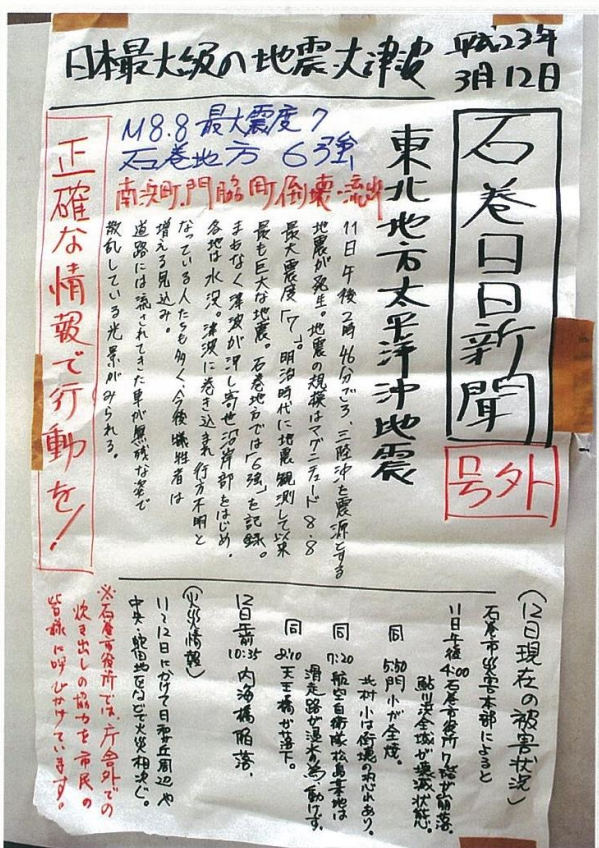 日本最大級の地震・大津波
平成23年
3月12日
石巻日日新聞
号外
東北地方太平洋沖地震
M8.8 最大震度7
石巻地方 6強
南浜町、門脇町倒壊・流出
11日午後2時46分ごろ、三陸沖を震源とする
地震が発生。地震の規模はマグニチュード8.8
最大震度「7」。明治時代に地震観測して以来
最も巨大な地震。石巻地方では「6強」を記録。
まもなく津波が押し寄せ沿岸部をはじめ、
各地は水没。津波に巻き込まれ行方不明と
なっている人たちも多く、今後犠牲者は
増える見込み。
道路には流されてきた車が無残な姿で
散乱している光景がみられる。
正確な情報で行動を!
(12日現在の被害状況)
石巻市災害本部によると
11日午後
4:00 石巻市役所7階が崩落。
鮎川浜全域が壊滅状態。
同 5:50 門小が全焼。
北村小は倒壊の恐れあり。
同 7:20 航空自衛隊松島基地は
滑走路が浸水の為動けず。
同 8:10 天王橋が落下。
12日午前
10:35 内海橋陥落。
(火災情報)
11〜12日にかけて日和が丘周辺や
中央・蛇田地区などで火災相次ぐ。
※石巻市役所では、庁舎外での
炊き出しの協力を市民の
皆様に呼びかけています。